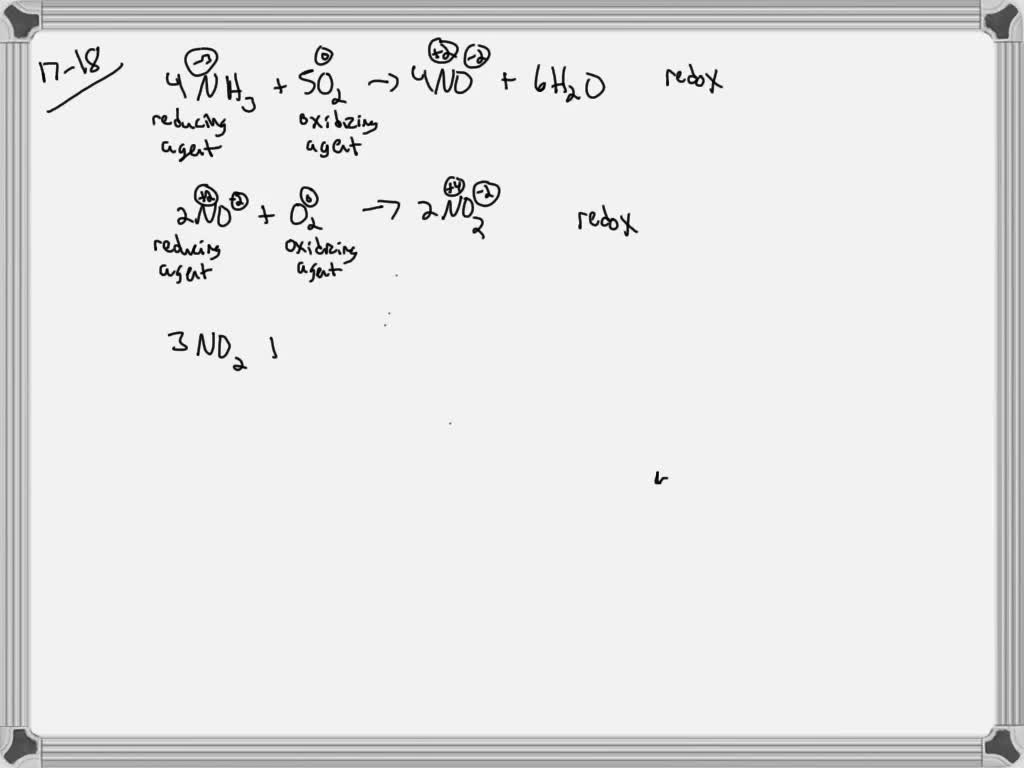 17-18
-3 0 +2 -2
4NH3 + 5O2 → 4NO + 6H2O redox
reducing agent oxidizing agent
+2 -2 0 +4 -2
2NO + O2 → 2NO2 redox
reducing agent oxidizing agent
3NO2